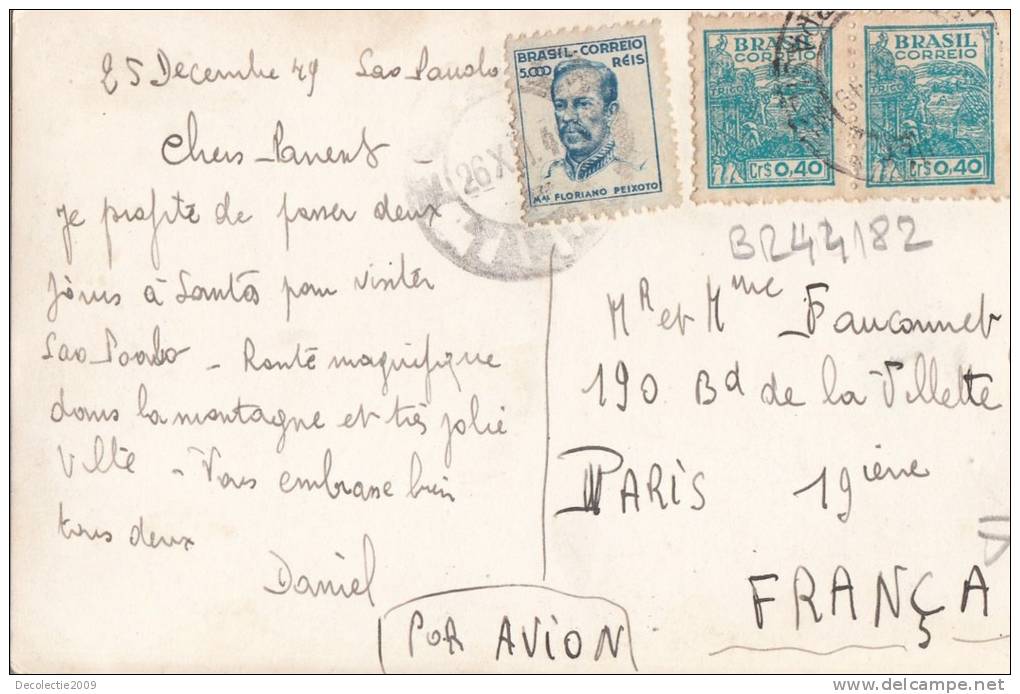 25 Decembre 49 Sao Paudo
Chers Parent -
je profite de passer deux
jours à Santos pour visiter
Sao Paolo - Route magnifique
dans la montagne et très jolie
Ville - Vous embrasse bien
tous deux
Daniel
BRASIL-CORREIO
5.000 RÉIS
MAL FLORIANO PEIXOTO
BRASIL
CORREIO
TRIGO
Cr$ 0,40
BRASIL
CORREIO
TRIGO
Cr$ 0,40
26 X
BR244182
Mr et Mme Fauconnet
190 Bd de la Villette
PARIS 19ième
FRANÇA
POR AVION
Decolectie2009
www.delcampe.net